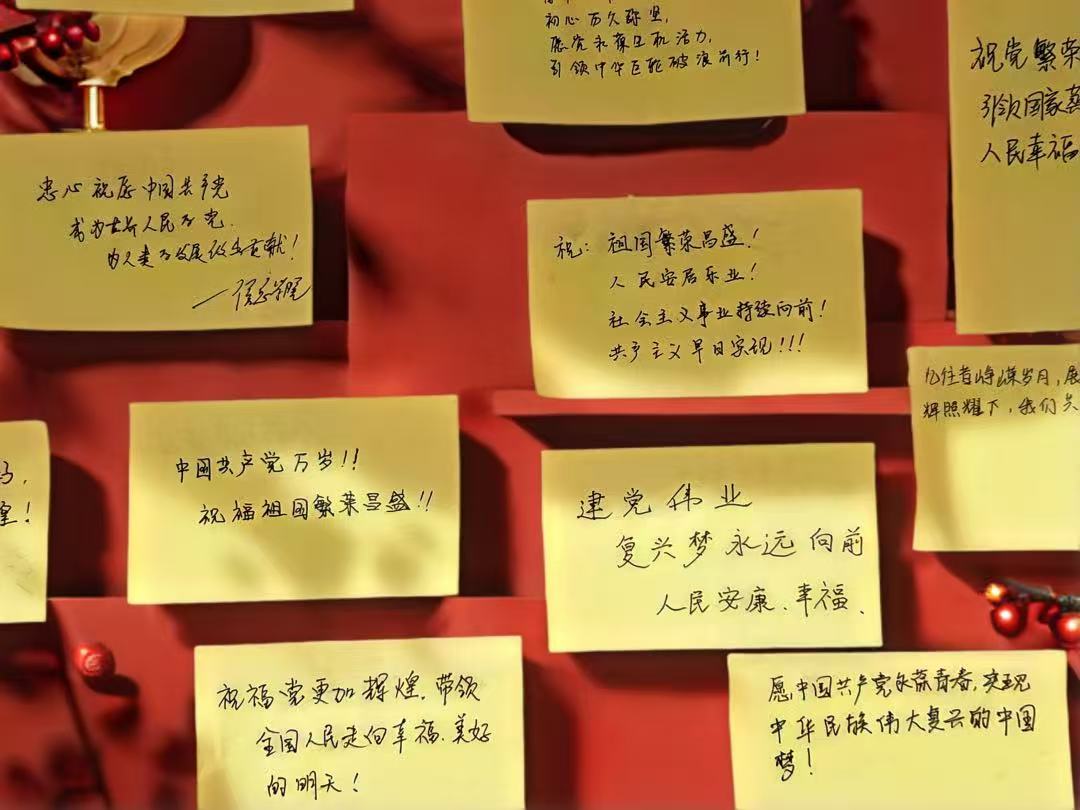 初心历久弥坚,
愿党永葆生机活力,
引领中华巨轮破浪前行!
祝党繁荣
引领国家
人民幸福
忠心祝愿中国共产党
成为世界人民之党.
为人类之发展做出贡献!
祝: 祖国繁荣昌盛!
人民安居乐业!
社会主义事业持续向前!
共产主义早日实现!!!
忆往昔峥嵘岁月,展
辉照耀下,我们共
中国共产党万岁!!
祝福祖国繁荣昌盛!!
建党伟业
复兴梦永远向前
人民安康、幸福、
祝福党更加辉煌.带领
全国人民走向幸福、美好
的明天!
愿中国共产党永葆青春,实现
中华民族伟大复兴的中国
梦!